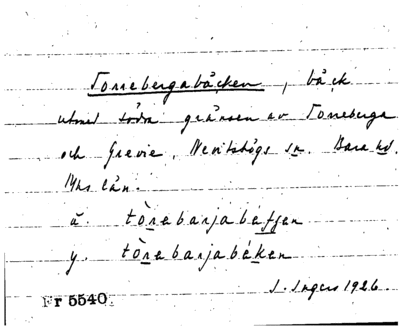 Torrebergabäcken, bäck
utmed södra gränsen av Torreberga
och Grevie, Nevitshögs sn. Bara hd.
Mhs län.
ä. tòrebarjabɛ́ḱḱen
y. tòrebarjabɛ́ken
S. Ingers 1926.
Fr 5540.